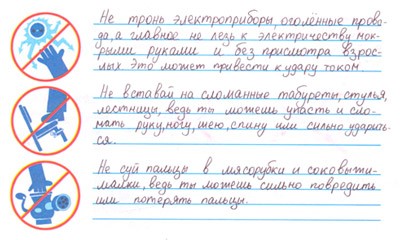 Не тронь электроприборы, оголённые прово-
да, а главное не лезь к электричеству мок-
рыми руками и без присмотра взрос-
лых. Это может привести к удару током
Не вставай на сломанные табуреты, стулья,
лестницы, ведь ты можешь упасть и сло-
мать руку, ногу, шею, спину или сильно ударить-
ся.
Не суй пальцы в мясорубки и соковыжи-
малки, ведь ты можешь сильно повредить
или потерять пальцы.